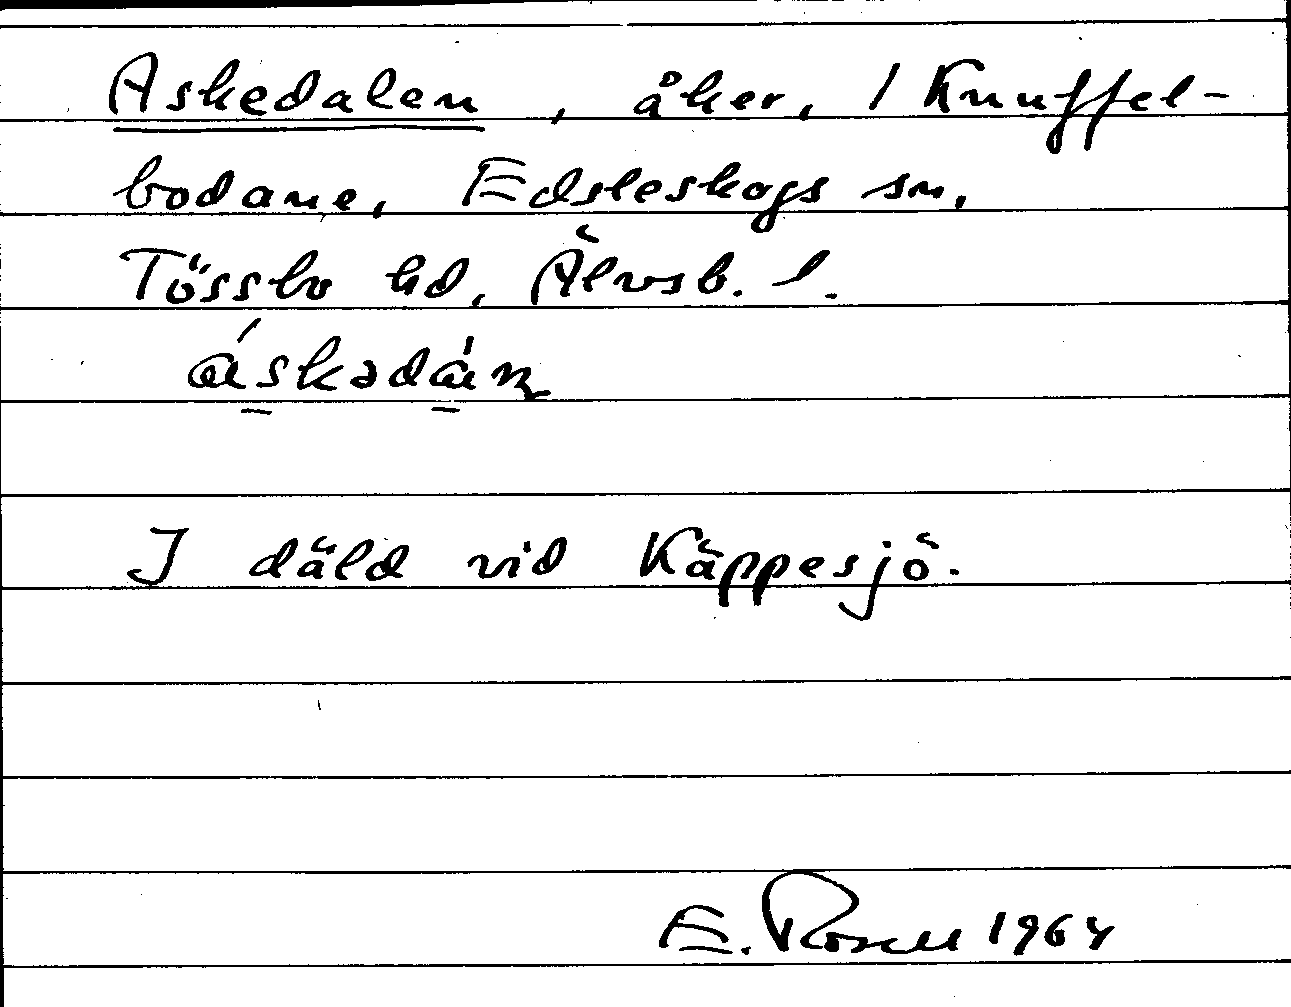 Askedalen, åker, 1 Knuffel-
bodane, Edsleskogs sn,
Tössbo hd, Älvsb. l.
áskədán
I däld vid Käppesjö.
E. Rosell 1964